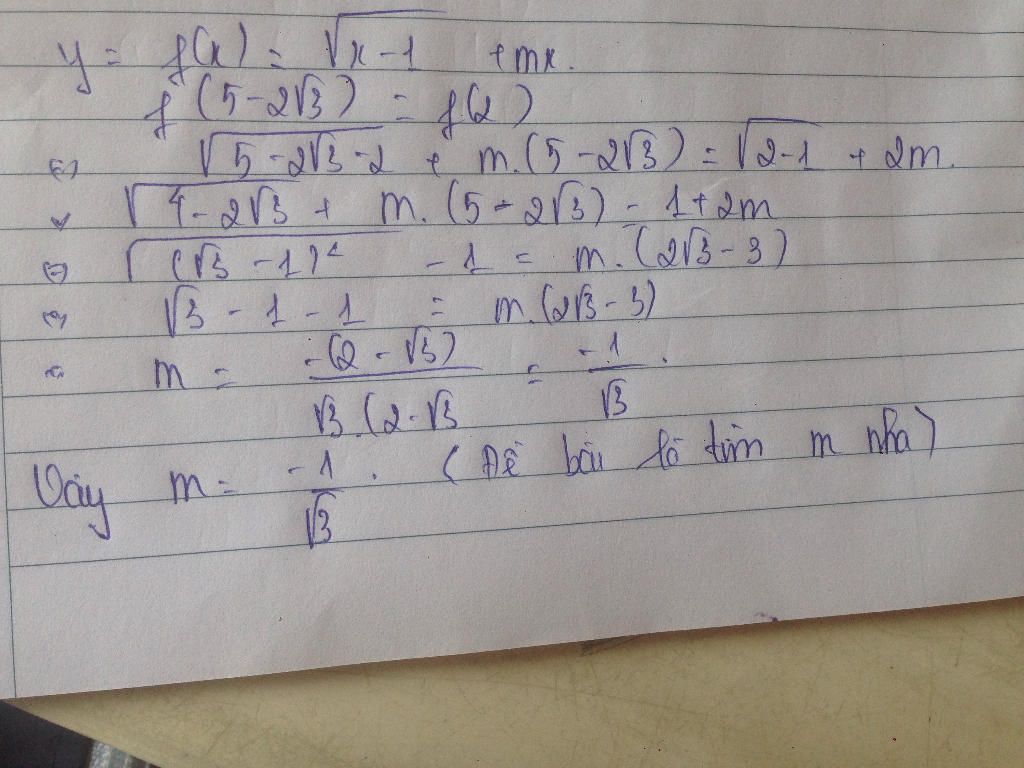 y = f(x) = √x-1 + mx.
f(5-2√3) = f(2)
⇔ √5-2√3-2 + m.(5-2√3) = √2-1 + 2m.
√4-2√3 + m.(5-2√3) - 1+2m
⇔ √(√3-1)² - 1 = m.(2√3-3)
⇔ √3 - 1 - 1 = m.(2√3-3)
m = -(2-√3) / √3.(2-√3 = -1/√3.
Vậy m = -1/√3. (Đề bài là tìm m nha)